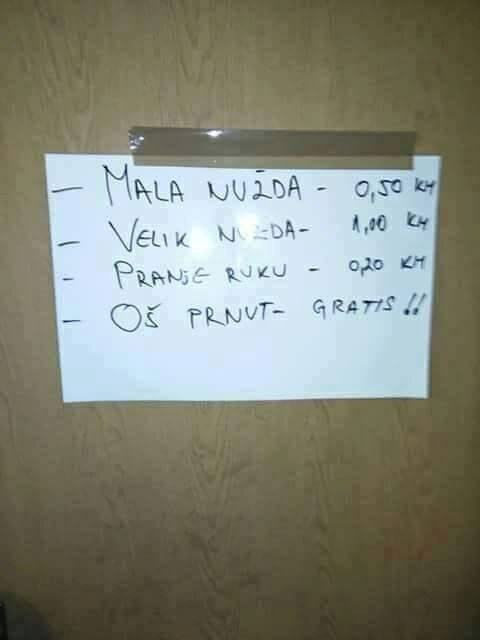 - MALA NUŽDA - 0,50 KM
- VELIKA NUŽDA - 1,00 KM
- PRANJE RUKU - 0,20 KM
- OŠ PRNUT - GRATIS!!